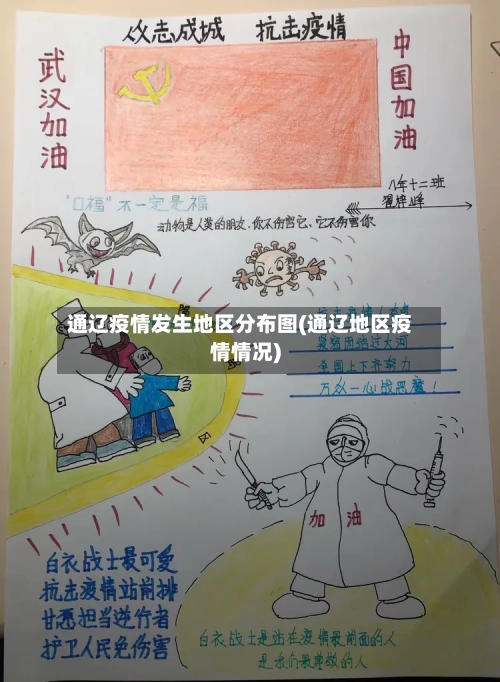 众志成城 抗击疫情
武汉加油
中国加油
八年十二班
"口福"不一定是福
动物是人类的朋友.你不伤害它、它不伤害你
通辽疫情发生地区分布图(通辽地区疫
情情况)
众志成城过大河
全国上下齐努力
万众一心战恶魔！
加 油
白衣战士最可爱
抗击疫情站前排
甘愿担当逆行者
护卫人民免伤害
白衣战士是站在疫情最前面的人
是我们最尊敬的人